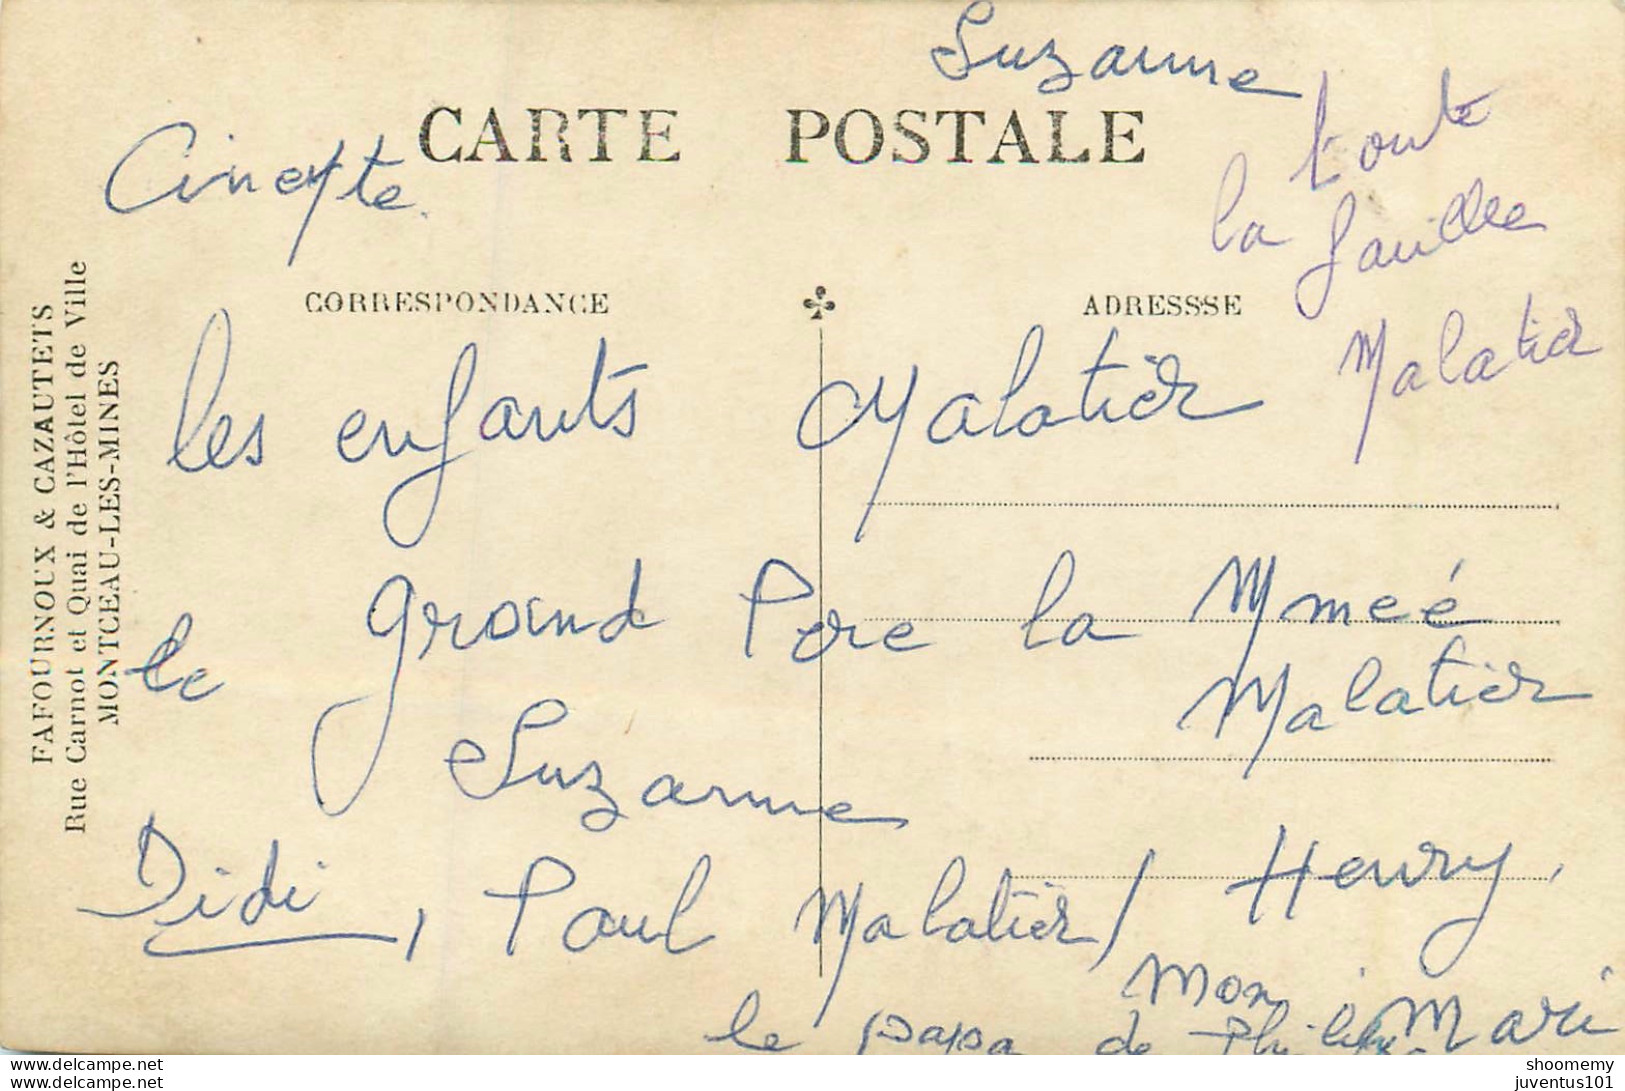 Suzanne
CARTE POSTALE
toute
la famille
Malatier
CORRESPONDANCE
ADRESSSE
les enfants Malatier
le grand Père la Mmeé
Malatier
Suzanne
Didi, Paul Malatier / Henry,
Mon Mari
le papa de
FAFOURNOUX & CAZAUTETS
Rue Carnot et Quai de l'Hôtel de Ville
MONTCEAU-LES-MINES
shoomemy
juventus101